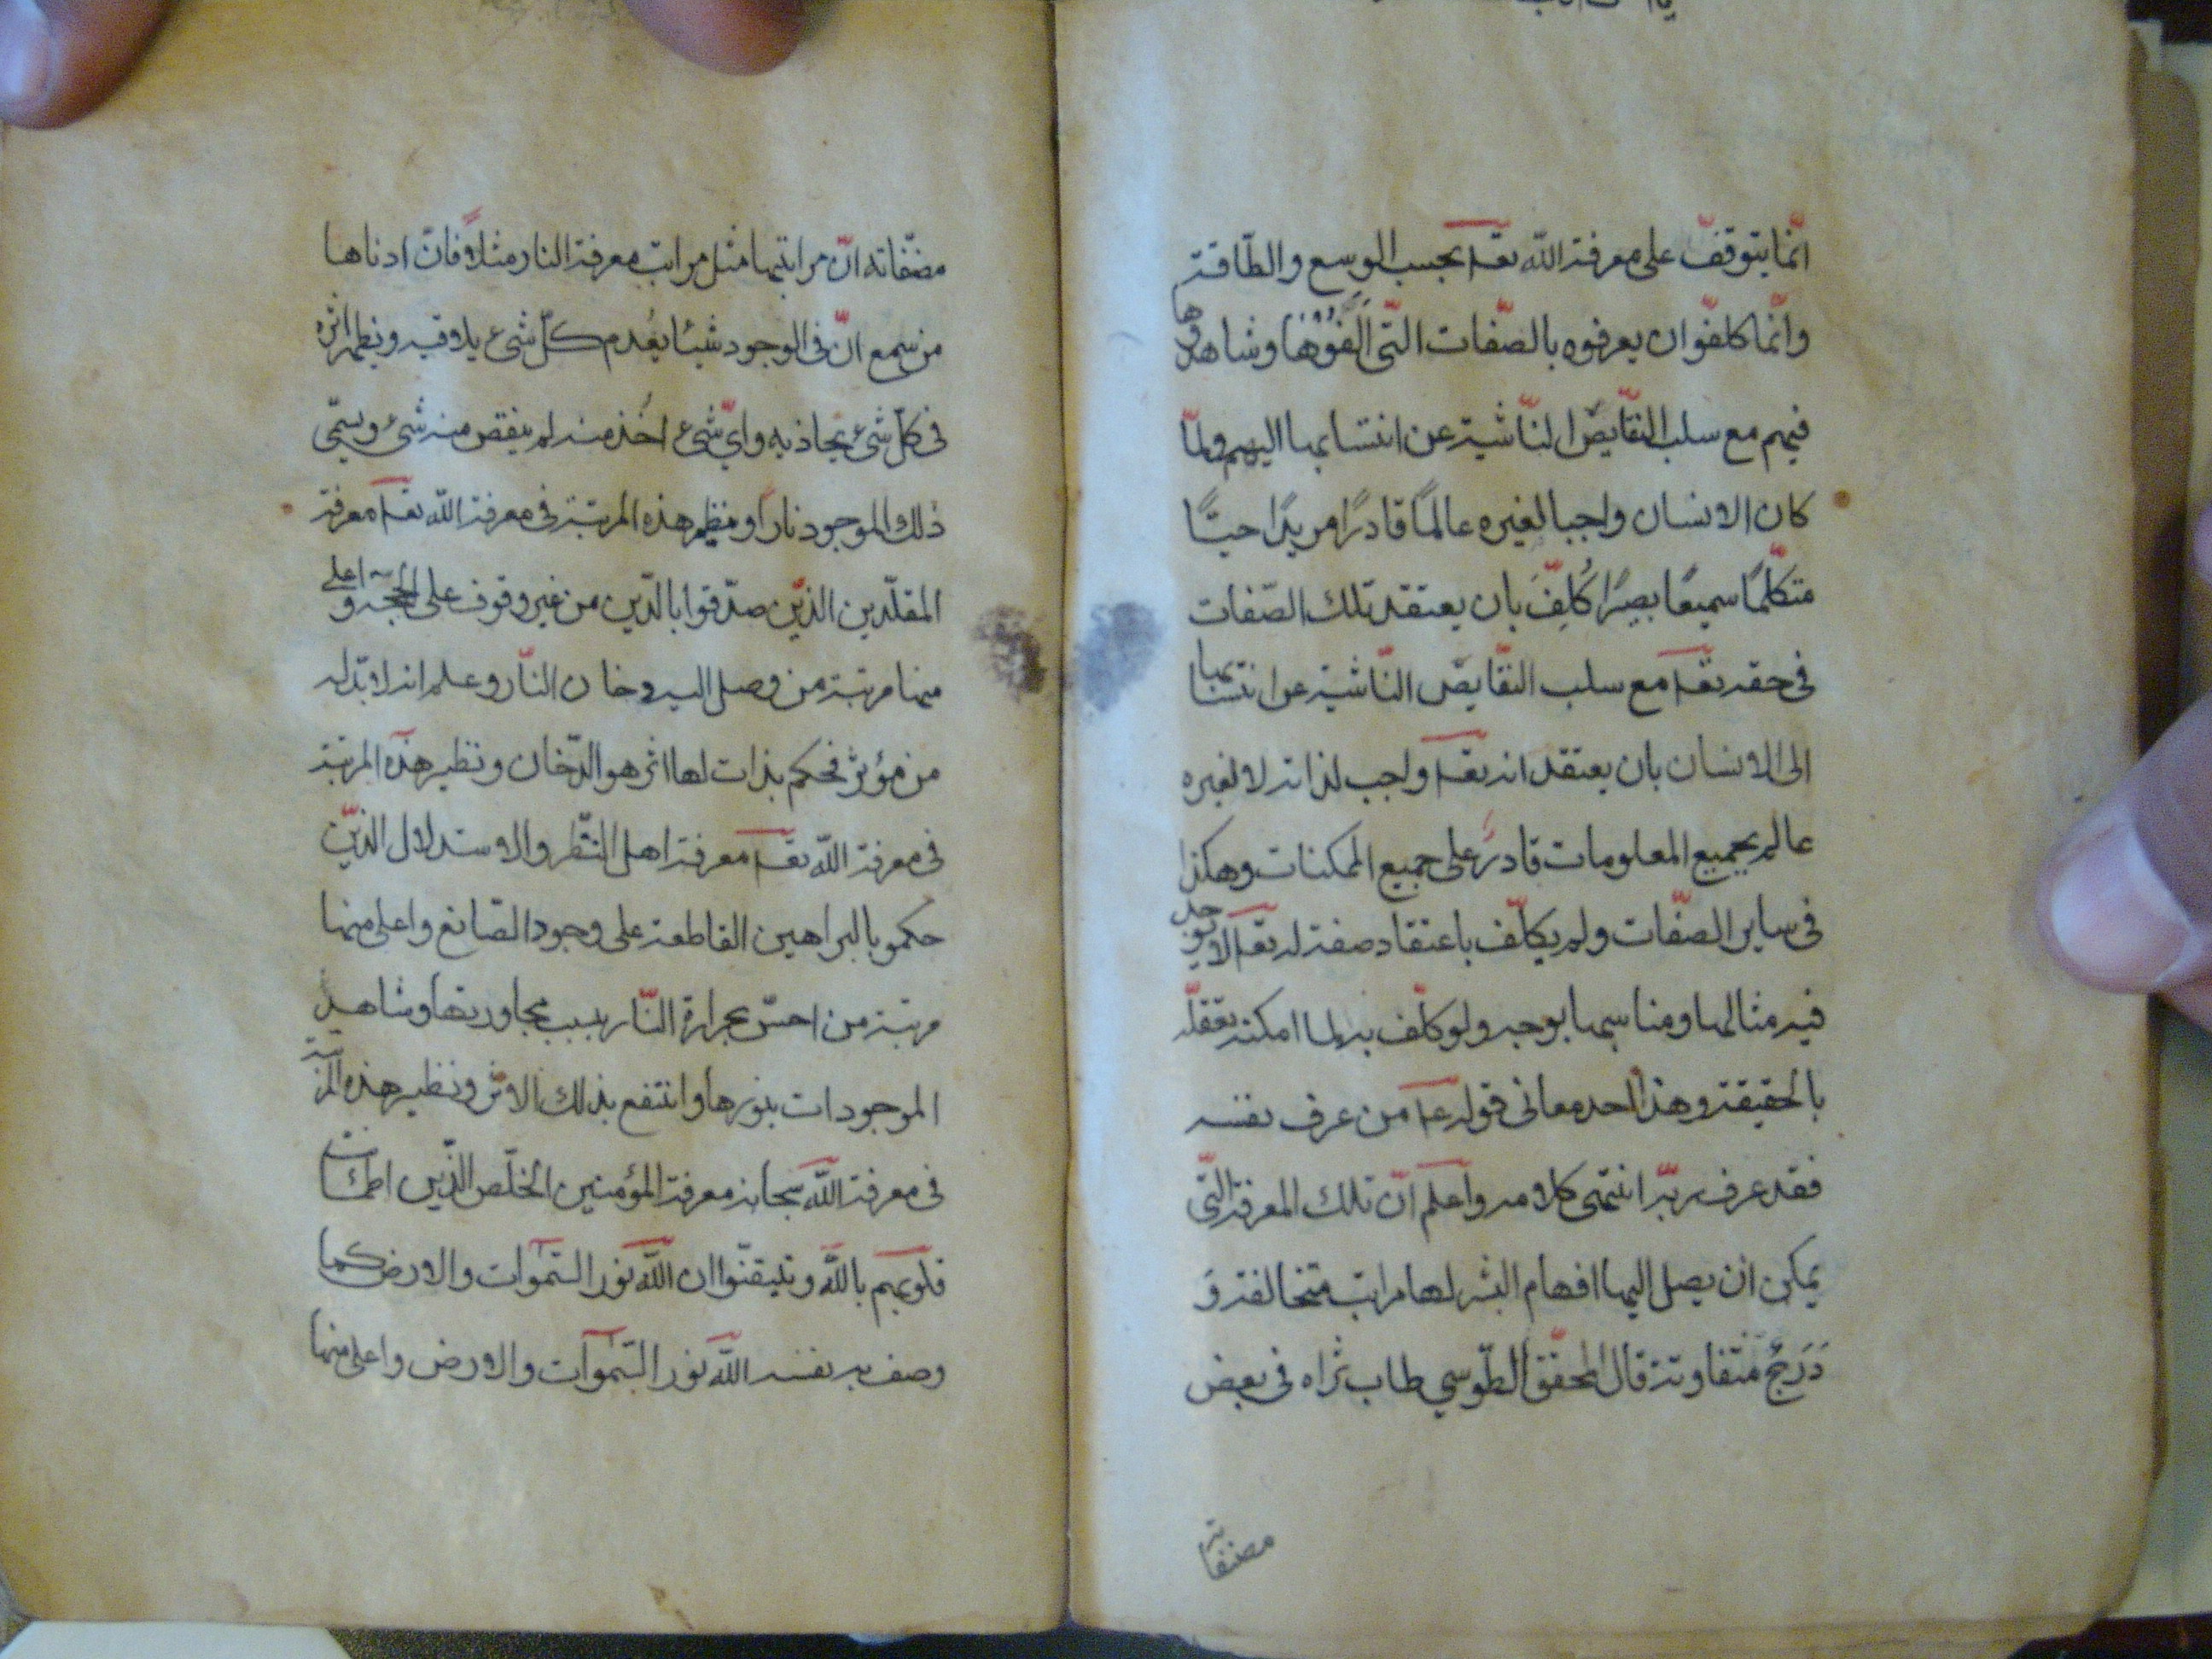 انّما يتوقّف على معرفة اللّه تعه بحسب الوسع والطّاقة
وانّما كلفّوا ان يعرفوه بالصّفات التّى الفوُها وشاهدوها
فيهم مع سلب النقّايص النّاشية عن انتسابها اليهم ولمّا
كان الانسان واجبا لغيره عالمًا قادرًا مريدًا حيّا
متكلّمًا سميعًا بصيرًا كُلّفَ بان يعتقد تلك الصّفات
فى حقه تعه مع سلب النقّايص النّاشية عن انتسابها
الى الانسان بان يعتقد انه تعه واجب لذاته لا لغيره
عالم بجميع المعلومات قادرٌ على جميع الممكنات وهكذا
فى ساير الصّفات ولم يكلّف باعتقاد صفة له تعه لا يوجد
فيه مثالها ومناسبها بوجه ولو كلّف به لما امكنه تعقّله
بالحقيقة وهذا احد معانى قوله عه من عرف نفسه
فقد عرف ربّه انتهى كلامه واعلم انّ تلك المعرفة التّى
يمكن ان يصل اليها افهام البشر لها مراتب متخالفة وَ
دَرَجٌ متفاوتة قال المحقّق الطّوسي طاب ثراه فى بعض
مصنفاته
مصنّفاته انّ مراتبها مثل مراتب معرفة النار مثلاً فانّ ادناها
من سمع انّ فى الوجود شيئا يعُدم كلّ شىء يلاقيه ويظهر اثره
فى كلّ شىء يحاذيه واىّ شىء اخُذ منه لم ينقص منه شىء ويسمّى
ذلك الموجود ناراً ونظير هذه المرتبة فى معرفة اللّه تعه معرفة
المقلّدين الذيّن صدّقوا بالدّين من غير وقوف على الحجّة واعلى
منها مرتبة من وصل اليه دخان النّار وعلم انه لا بدّ له
من مؤثر فحكم بذات لها اثر هو الدّخان ونظير هذه المرتبة
فى معرفة اللّه تعه معرفة اهل النّظر والاستدلال الذيّن
حكمو بالبراهين القاطعة على وجود الصّانع واعلى منها
مرتبة من احسّ بحرارة النّار بسبب مجاورتها وشاهد
الموجودات بنورها وانتفع بذلك الاثر ونظير هذه المرتبة
فى معرفة اللّه سبحانه معرفة المؤمنين الخلّص الذّين اطمأنت
قلوبهم باللّه وتيقنّوا ان اللّه نور السّموات والارض كما
وصف به نفسه اللّه نور السّموات والارض واعلى منها